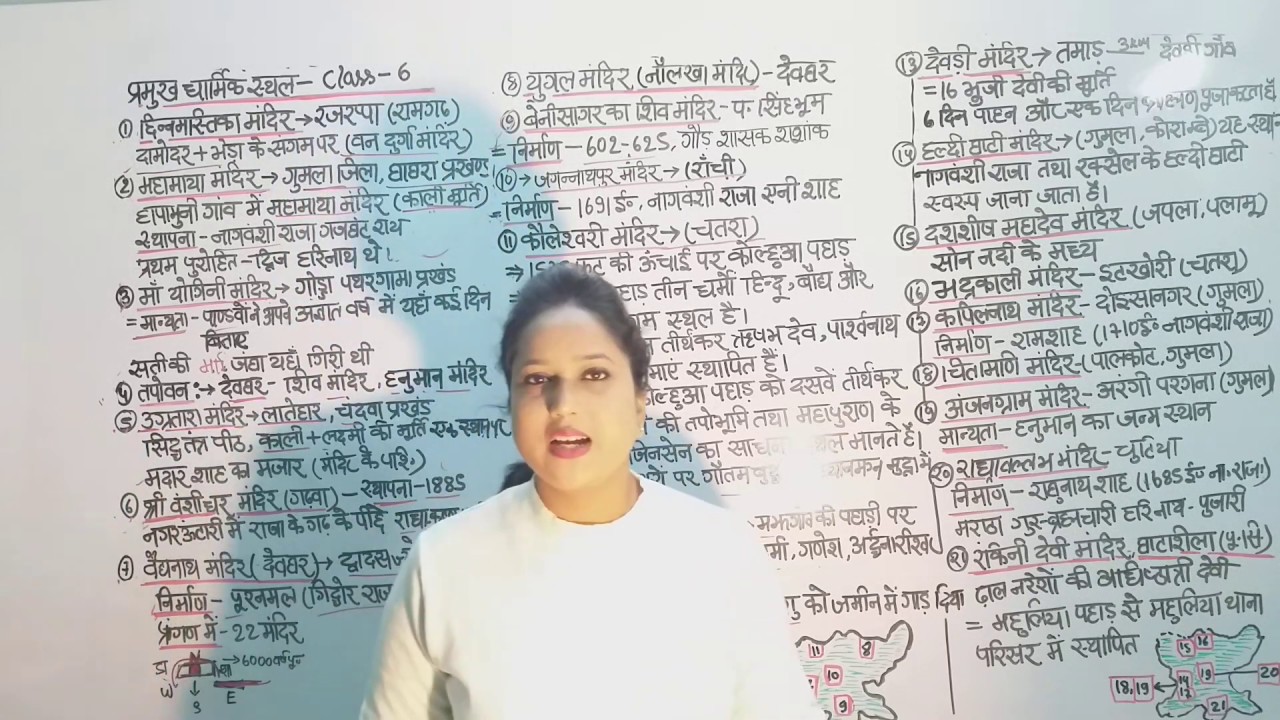 प्रमुख धार्मिक स्थल - Class-6
① छिन्नमस्तिका मंदिर → रजरप्पा (रामगढ़)
दामोदर + भेड़ा के संगम पर (वन दुर्गा मंदिर)
② महामाया मंदिर → गुमला जिला, घाघरा प्रखण्ड
हापामुनी गांव में महामाया मंदिर (काली मूर्ति)
स्थापना - नागवंशी राजा गजघंट राय
प्रथम पुरोहित - द्विज हरिनाथ थे।
③ माँ योगिनी मंदिर → गोड्डा पथरगामा प्रखंड
= मान्यता - पाण्डवों ने अपने अज्ञात वर्ष में यहाँ कई दिन
बिताए
सती की जंघा यहाँ गिरी थी
④ तपोवन :→ देवघर - शिव मंदिर, हनुमान मंदिर
⑤ उग्रतारा मंदिर → लातेहार, चंदवा प्रखंड
सिद्ध तंत्र पीठ, काली + लक्ष्मी की मूर्ति एक स्थान पर
मदार शाह का मजार (मंदिर के पश्चि.)
⑥ श्री वंशीधर मंदिर (गढ़वा) - स्थापना - 1885
नगरऊंटारी में राजा के गढ़ के पीछे राधा
⑦ वैद्यनाथ मंदिर (देवघर) →
निर्माण - पूरनमल (गिद्धोर
प्रंगण में - 22 मंदिर
→ 6000
W
S
E
⑧ युगल मंदिर (नौलखा मंदिर) - देवघर
⑨ बेनीसागर का शिव मंदिर - प. सिंहभूम
= निर्माण - 602-625, गौड़ शासक शशांक
⑩ → जगन्नाथपुर मंदिर → (राँची)
= निर्माण - 1691 ई॰, नागवंशी राजा एनी शाह
⑪ कौलेश्वरी मंदिर → (चतरा)
की ऊंचाई पर कोल्हुआ पहाड़
तीन धर्मो हिन्दू, बौद्य और
स्थल है।
तीर्थकर ऋषभ देव, पार्श्वनाथ
स्थापित हैं।
पहाड़ को दसवें तीर्थकर
की तपोभूमि तथा महापुराण के
जिनसेन का मानते हैं।
पर गौतम
की पहाड़ी पर
गणेश, अर्द्धनारीश्वर
को जमीन में गाड़ दिया
11 8
10
9
⑬ देवड़ी मंदिर → तमाड़ 3KM देवड़ी गाँव
= 16 भुजी देवी की मूर्ति
6 दिन पाहन और एक दिन पूजा करता है
⑭ हल्दी घाटी मंदिर → (गुमला, कोराम्बे) यह स्थान
नागवंशी राजा तथा रक्सेल के हल्दी घाटी
स्वरुप जाना जाता है।
⑮ दशशीष महादेव मंदिर (जपला, पलामू)
सोन नदी के मध्य
⑯ भद्रकाली मंदिर - इटखोरी (चतरा)
⑰ कपिलनाथ मंदिर - दोइसानगर (गुमला)
निर्माण - रामशाह (1710 ई॰ नागवंशी राजा)
⑱ चिंतामणि मंदिर - (पालकोट, गुमला)
⑲ अंजनग्राम मंदिर - अरगी परगना (गुमला)
मान्यता - हनुमान का जन्म स्थान
⑳ राधावल्लभ मंदिर - चुटिया
निर्माण - रघुनाथ शाह (1685 ई॰ ना. राजा)
मराठा गुरु - ब्रह्मचारी हरिनाथ - पुजारी
㉑ रंकिनी देवी मंदिर, घाटाशीला (पू. सिं)
ढाल नरेशों की अधिष्ठात्री देवी
= महुलिया पहाड़ से महुलिया थाना
परिसर में स्थापित
15 16
14 19 20
17
18,19
21